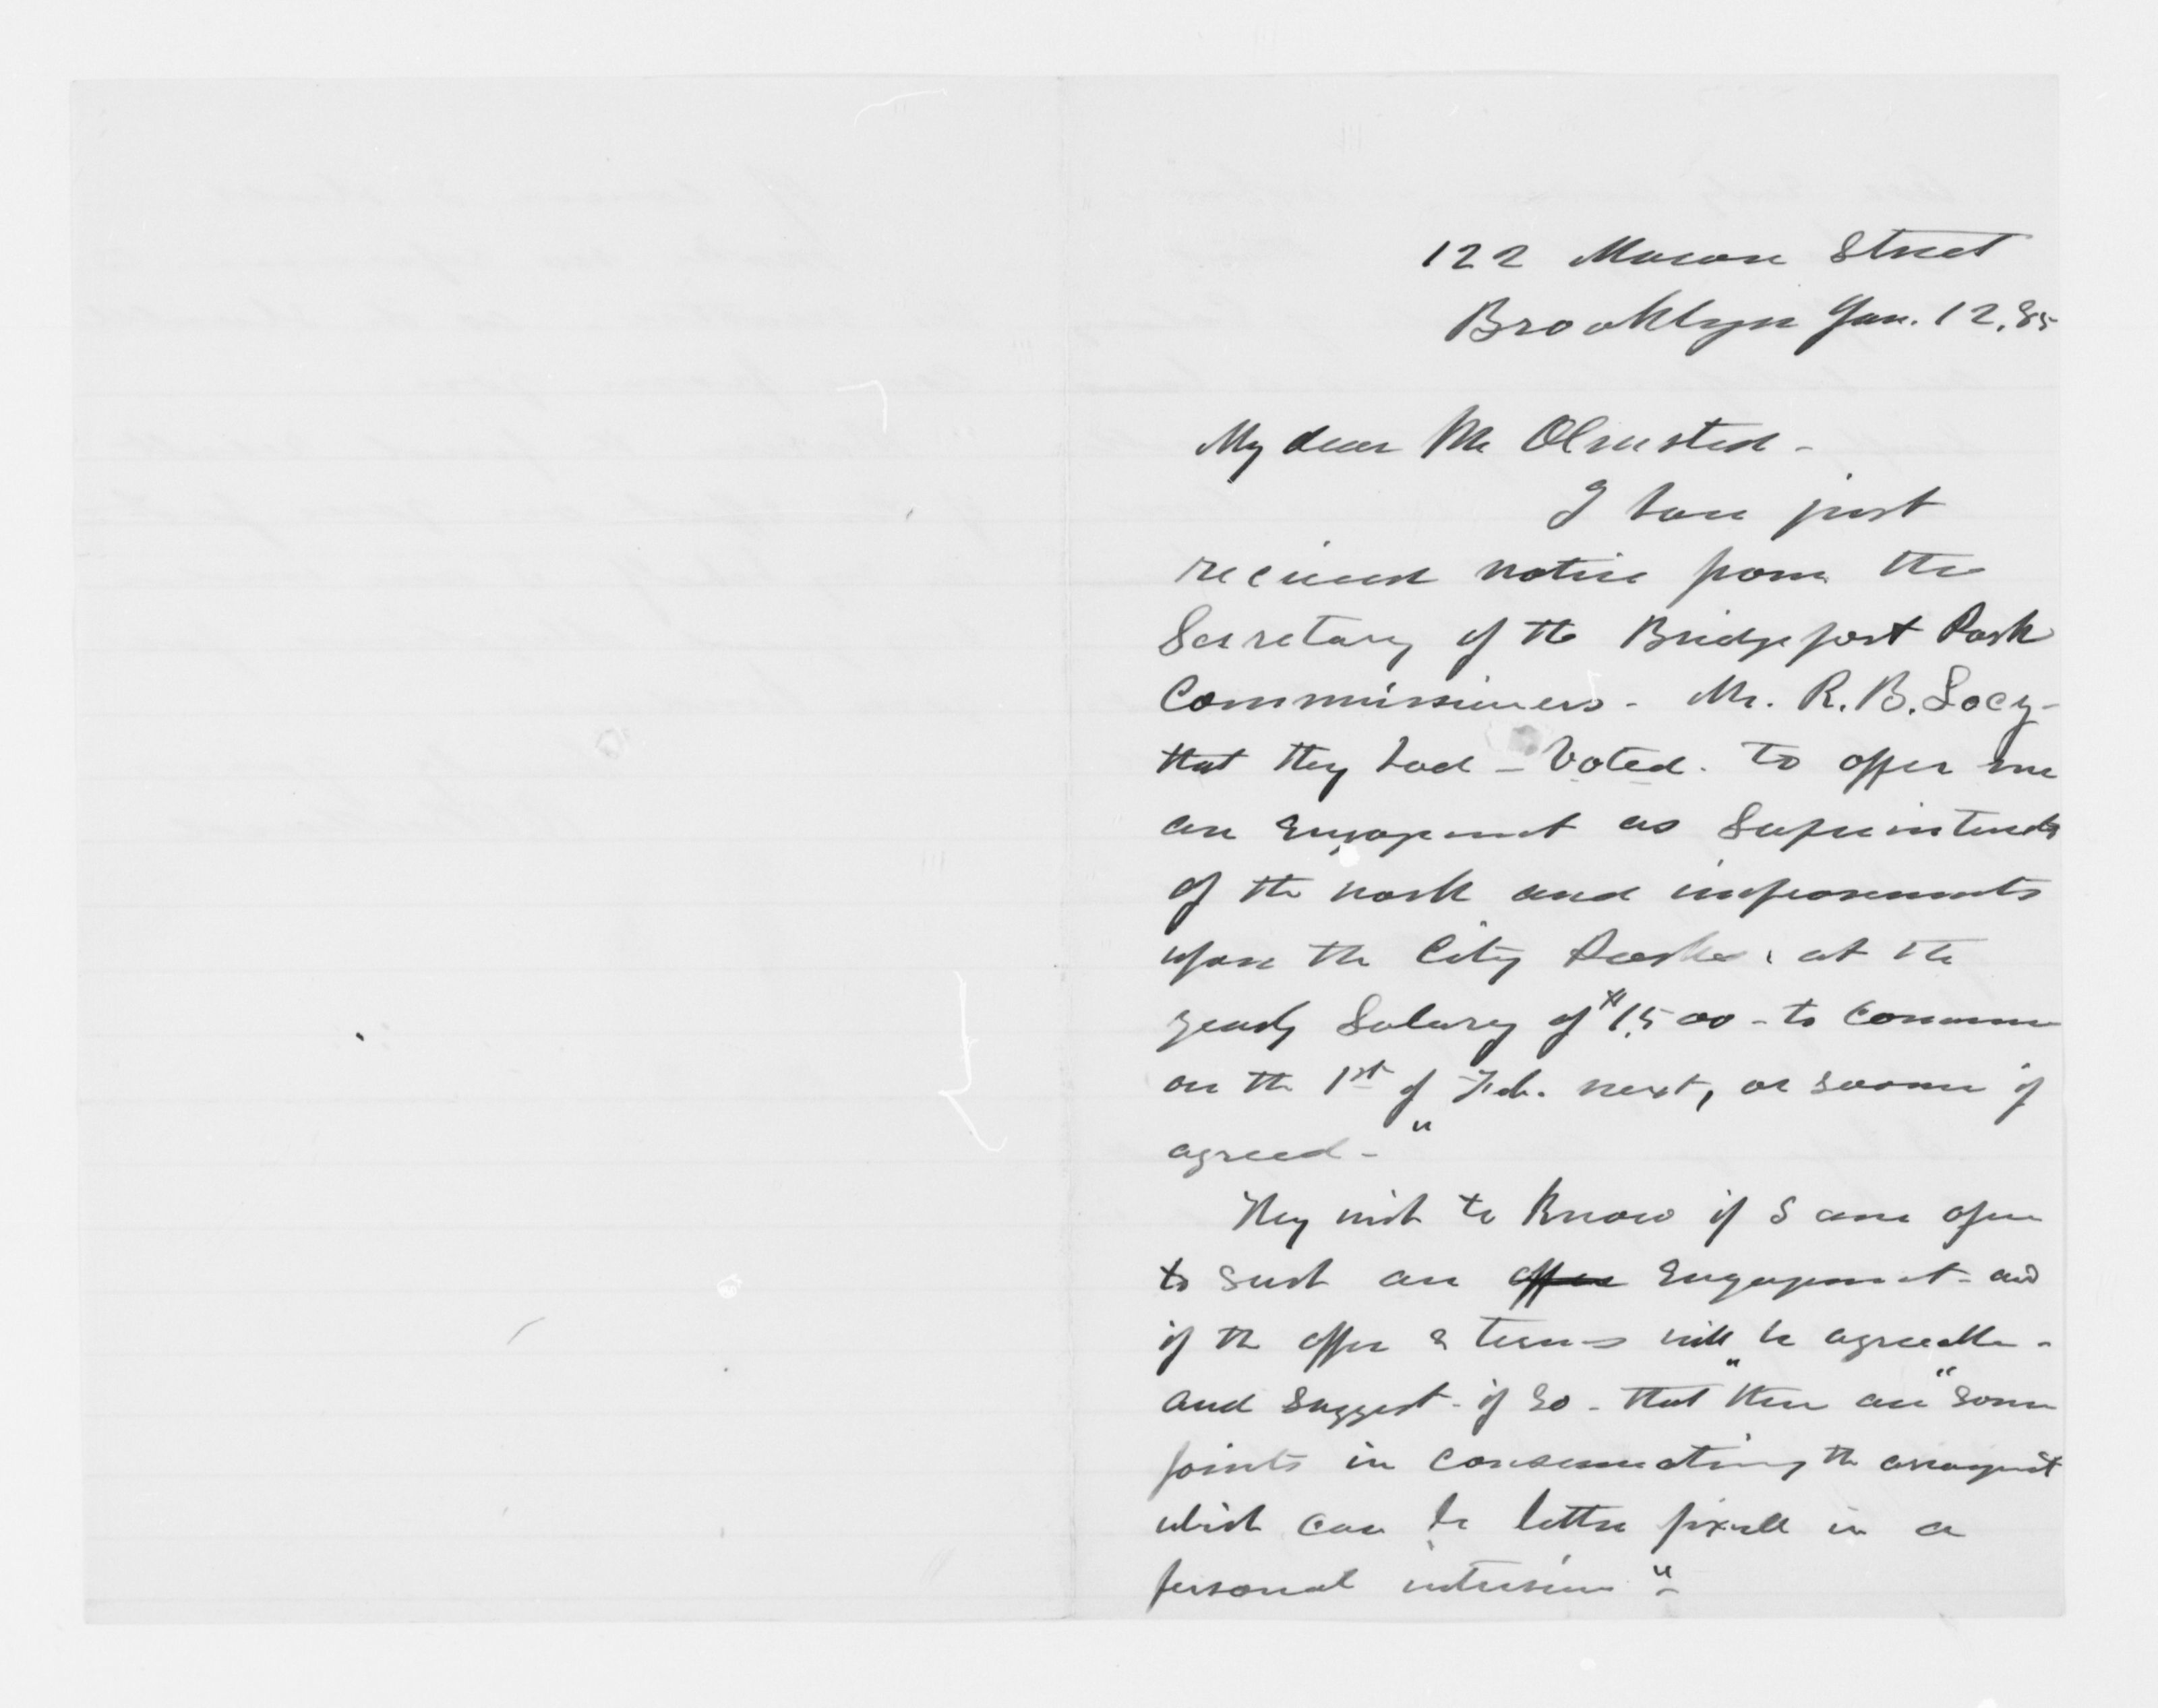 122 Macon Street
Brooklyn Jan. 12, 85
My dear Mr Olmsted -
I have just
received notice from the
Secretary of the Bridgeport Park
Commissioners - Mr. R. B. Locy -
that they had - Voted. to offer me
an engagement as Superintendt
of the work and improvements
upon the City Parks, at the
yearly Salary of $1500 - to commence
on the 1st of Feb. next, or sooner if
agreed - "
They wish to know if I am open
to such an offer Engagement - and
if the offer & terms will be agreeable -
and suggest - if so - that "there are "some
points in consummating the arrangement
which can be better fixed in a
personal interview" -